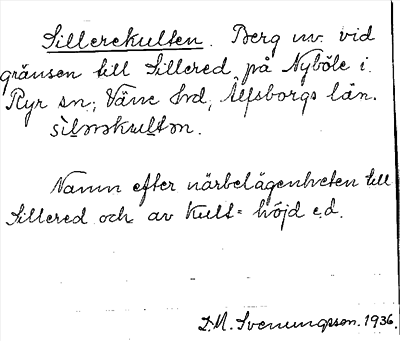 Sillerekulten. Berg nv. vid
gränsen till Sillered på Nyböle i
Ryr sn; Väne hd, Älfsborgs län.
sìlərəkultən.
Namn efter närbelägenheten till
Sillered och av kult = höjd e.d.
D.M. Svenungsson. 1936.